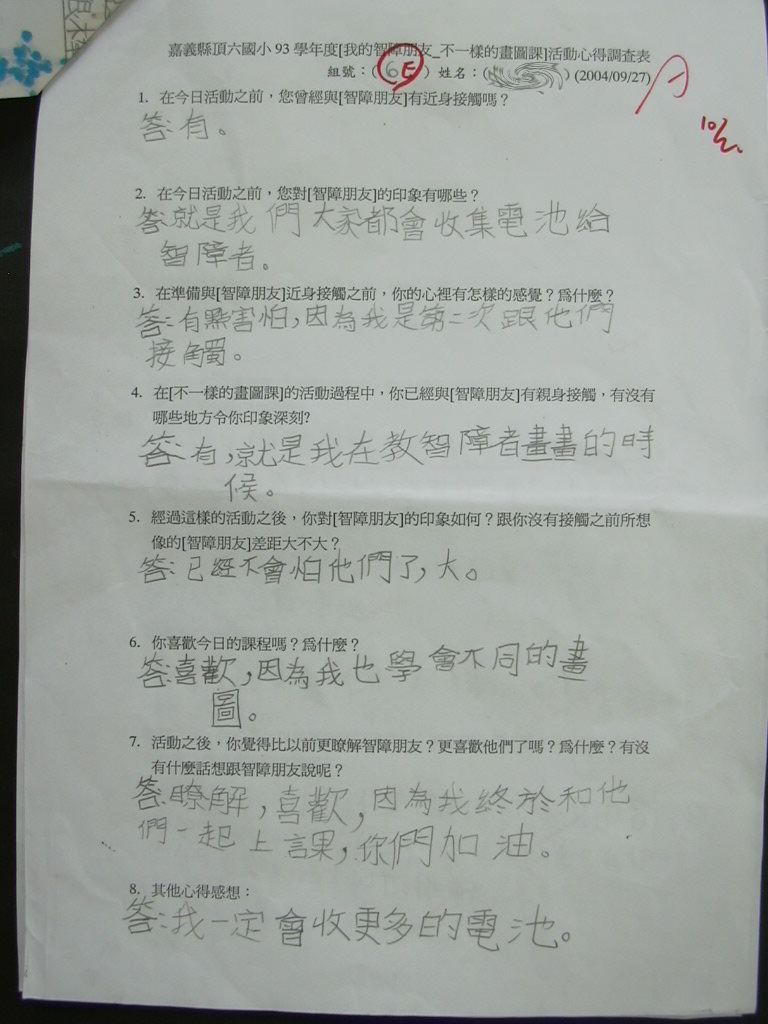 嘉義縣頂六國小93學年度[我的智障朋友_不一樣的畫圖課]活動心得調查表
組號：(6E) 姓名：( ) (2004/09/27)
A
1. 在今日活動之前，您曾經與[智障朋友]有近身接觸嗎？
答:有。
2. 在今日活動之前，您對[智障朋友]的印象有哪些？
答:就是我們大家都會收集電池給
智障者。
3. 在準備與[智障朋友]近身接觸之前，你的心裡有怎樣的感覺？爲什麼？
答:有點害怕，因為我是第二次跟他們
接觸。
4. 在[不一樣的畫圖課]的活動過程中，你已經與[智障朋友]有親身接觸，有沒有
哪些地方令你印象深刻?
答:有，就是我在教智障者畫畫的時
候。
5. 經過這樣的活動之後，你對[智障朋友]的印象如何？跟你沒有接觸之前所想
像的[智障朋友]差距大不大？
答:已經不會怕他們了，大。
6. 你喜歡今日的課程嗎？爲什麼？
答:喜歡，因為我也學會不同的畫
圖。
7. 活動之後，你覺得比以前更瞭解智障朋友？更喜歡他們了嗎？爲什麼？有沒
有什麼話想跟智障朋友說呢？
答:瞭解，喜歡，因為我終於和他
們一起上課，你們加油。
8. 其他心得感想：
答:我一定會收更多的電池。